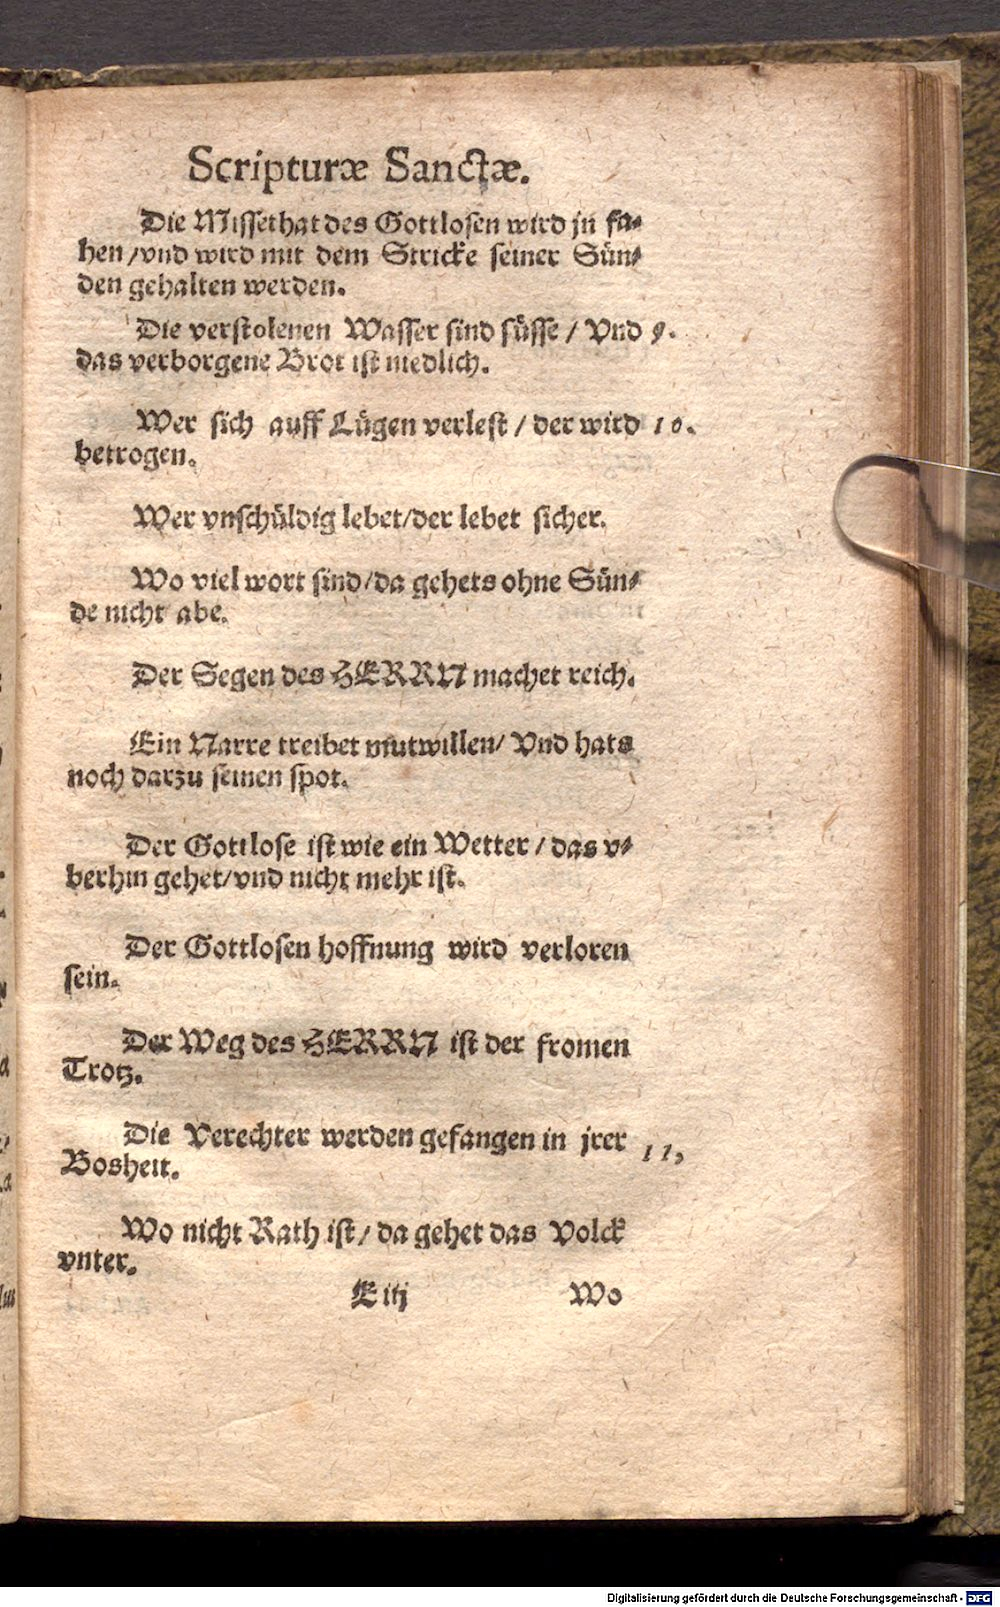 Scripturæ Sanctæ.
Die Missethat des Gottlosen wird jn fa-
hen/vnd wird mit dem Stricke seiner Sün-
den gehalten werden.
Die verstolenen Wasser sind süsse / Vnd 9.
das verborgene Brot ist niedlich.
Wer sich auff Lügen verlest / der wird 10.
betrogen.
Wer vnschüldig lebet/der lebet sicher.
Wo viel wort sind/da gehets ohne Sün-
de nicht abe.
Der Segen des HERRN machet reich.
Ein Narre treibet mutwillen/ Vnd hats
noch darzu seinen spot.
Der Gottlose ist wie ein Wetter / das v-
berhin gehet/vnd nicht mehr ist.
Der Gottlosen hoffnung wird verloren
sein.
Der Weg des HERRN ist der fromen
Trotz.
Die Verechter werden gefangen in jrer 11,
Bosheit.
Wo nicht Rath ist / da gehet das Volck
vnter.
E iij Wo
Digitalisierung gefördert durch die Deutsche Forschungsgemeinschaft - DFG